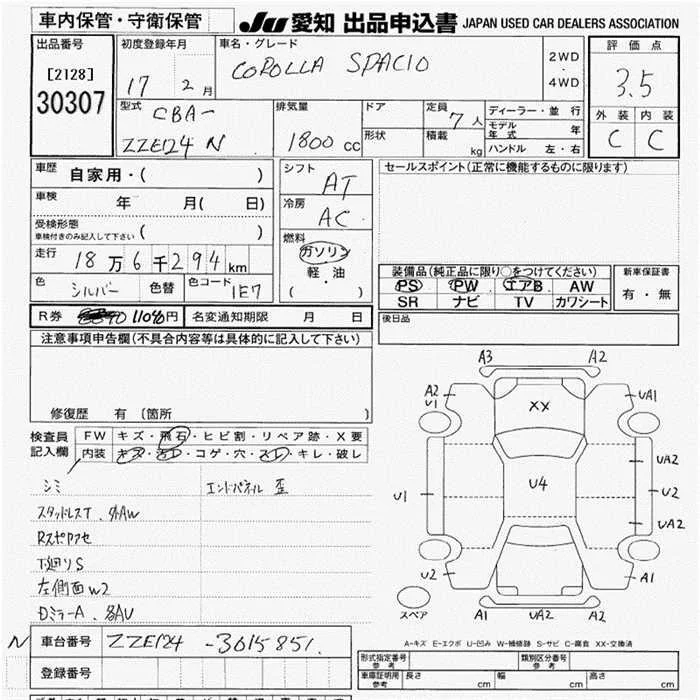 車内保管・守衛保管
JU 愛知 出品申込書 JAPAN USED CAR DEALERS ASSOCIATION
出品番号
[2128]
30307
初度登録年月
17 2月
車名・グレード
COROLLA SPACIO
2WD
・
4WD
評価点
3.5
外装 内装
C C
型式
CBA-
ZZE124 N
排気量
1800 cc
ドア
形状
定員
7人
積載
kg
ディーラー・並行
モデル年式 年
ハンドル 左・右
車歴
自家用・( )
車検
年 月( 日)
受検形態
車検付きのみ記入して下さい ( )
走行
18万6千294km
色
シルバー
色替
色コード
1E7
シフト
AT
冷房
AC
燃料
ガソリン
軽・油
( )
セールスポイント(正常に機能するものに限ります)
装備品(純正品に限り○をつけてください)
PS PW エアB AW
SR ナビ TV カワシート
新車保証書
有・無
R券 11090円
名変通知期限 月 日
後日品
注意事項申告欄(不具合内容等は具体的に記入して下さい)
修復歴 有 〔箇所 〕
検査員
記入欄
FW キズ・飛石・ヒビ割・リペア跡・X要
内装 キズ・汚レ・コゲ・穴・スレ・キレ・破レ
シミ
エンドパネル 歪
スタッドレスT.外AW
Rスポアクセ
下廻りS
左側面W2
DミラーA.外AV
A3 A2
A2
U1
UA1
XX
UA2
U1
U4
U2
UA2
U2
A1
スペア
A1 UA2 A2
A-キズ E-エクボ U-凹み W-補修跡 S-サビ C-腐食 XX-交換済
N
車台番号 ZZE124-3015851
登録番号
形式指定番号
参考
類別区分番号
参考
車庫証明用
参考
長さ cm
幅 cm
高さ cm